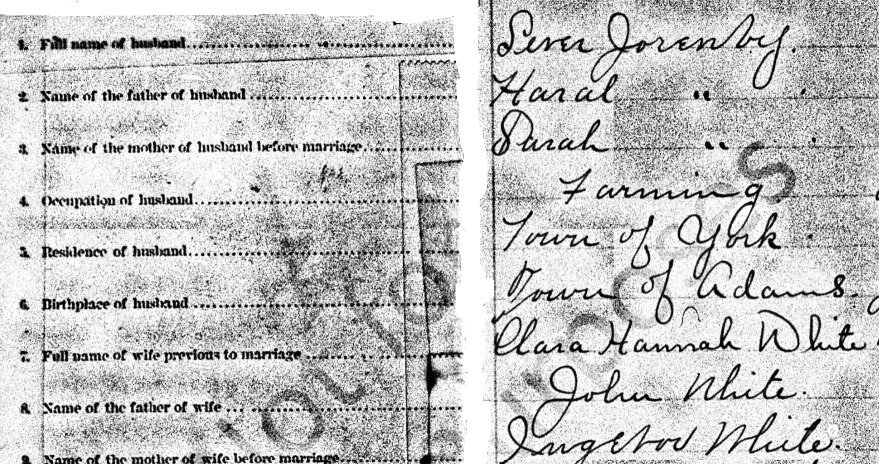 1. Full name of husband Sever Jorenby.
2. Name of the father of husband Haral "
3. Name of the mother of husband before marriage Sarah "
4. Occupation of husband Farming
5. Residence of husband Town of York.
6. Birthplace of husband Town of Adams.
7. Full name of wife previous to marriage Clara Hannah White
8. Name of the father of wife John White.
9. Name of the mother of wife before marriage White.